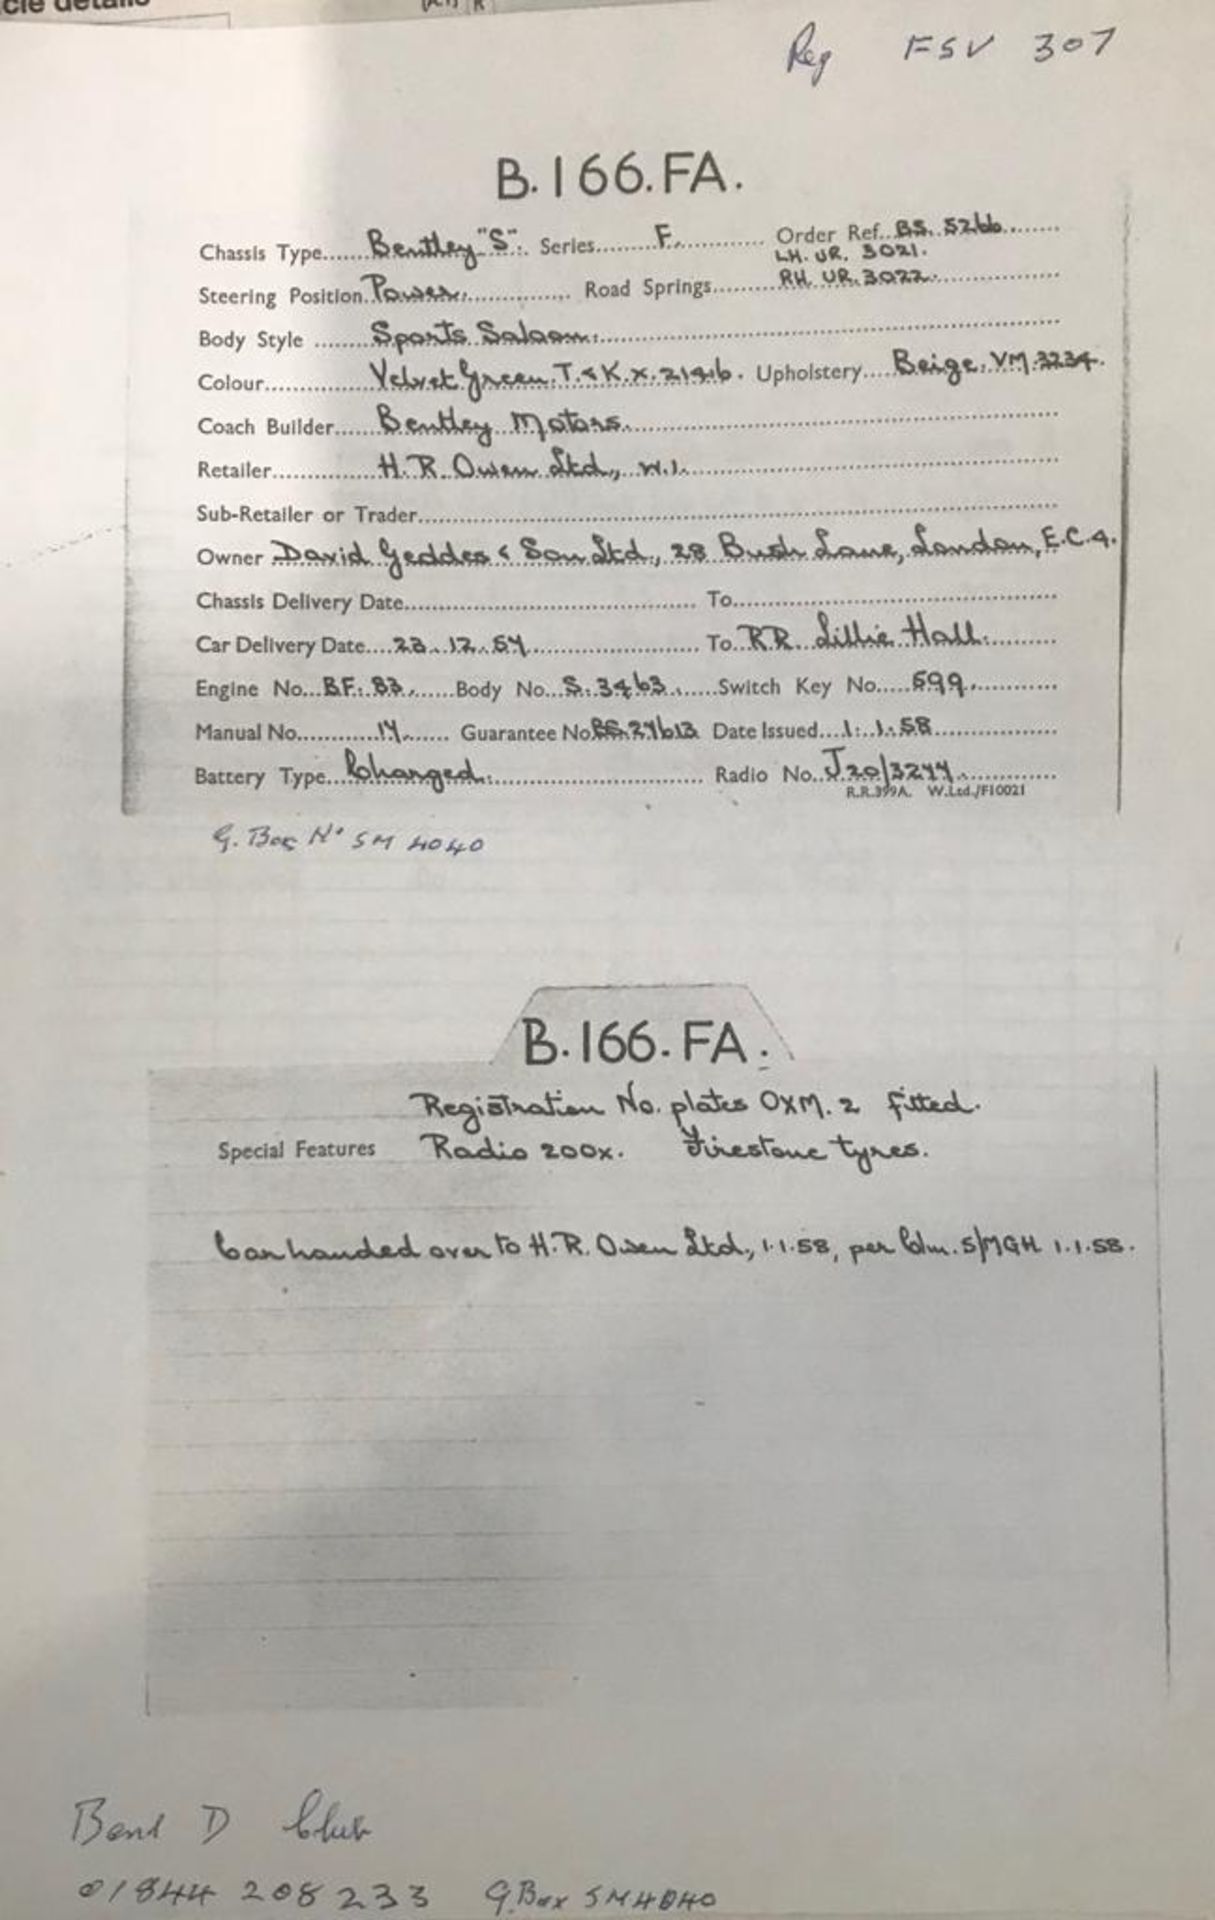 cle details
Reg FSV 307
B.166.FA.
Chassis Type Bentley "S". Series F. Order Ref. BS. 5266
LH. UR. 3021.
Steering Position Power. Road Springs RH. UR. 3022.
Body Style Sports Saloon.
Colour Velvet Green. T.&K.X. 2146. Upholstery Beige. VM.3234.
Coach Builder Bentley Motors.
Retailer H.R. Owen Ltd., W.1.
Sub-Retailer or Trader
Owner David Geddes & Son Ltd., 28 Bush Lane, London, E.C.4.
Chassis Delivery Date To
Car Delivery Date 23.12.57 To RR. Lillie Hall.
Engine No. BF. 83. Body No. S. 3463. Switch Key No. 699.
Manual No. 17. Guarantee No. BS.27613 Date Issued 1.1.58
Battery Type Charged. Radio No. J20/3277.
R.R.399A. W.Ltd./F10021
G. Box No SM 4040
B.166.FA.
Registration No. plates OXM.2 fitted.
Special Features Radio 200x. Firestone tyres.
Car handed over to H.R. Owen Ltd., 1.1.58, per S/MGH 1.1.58.
D Club
01844 208 233 G.Box SM4040